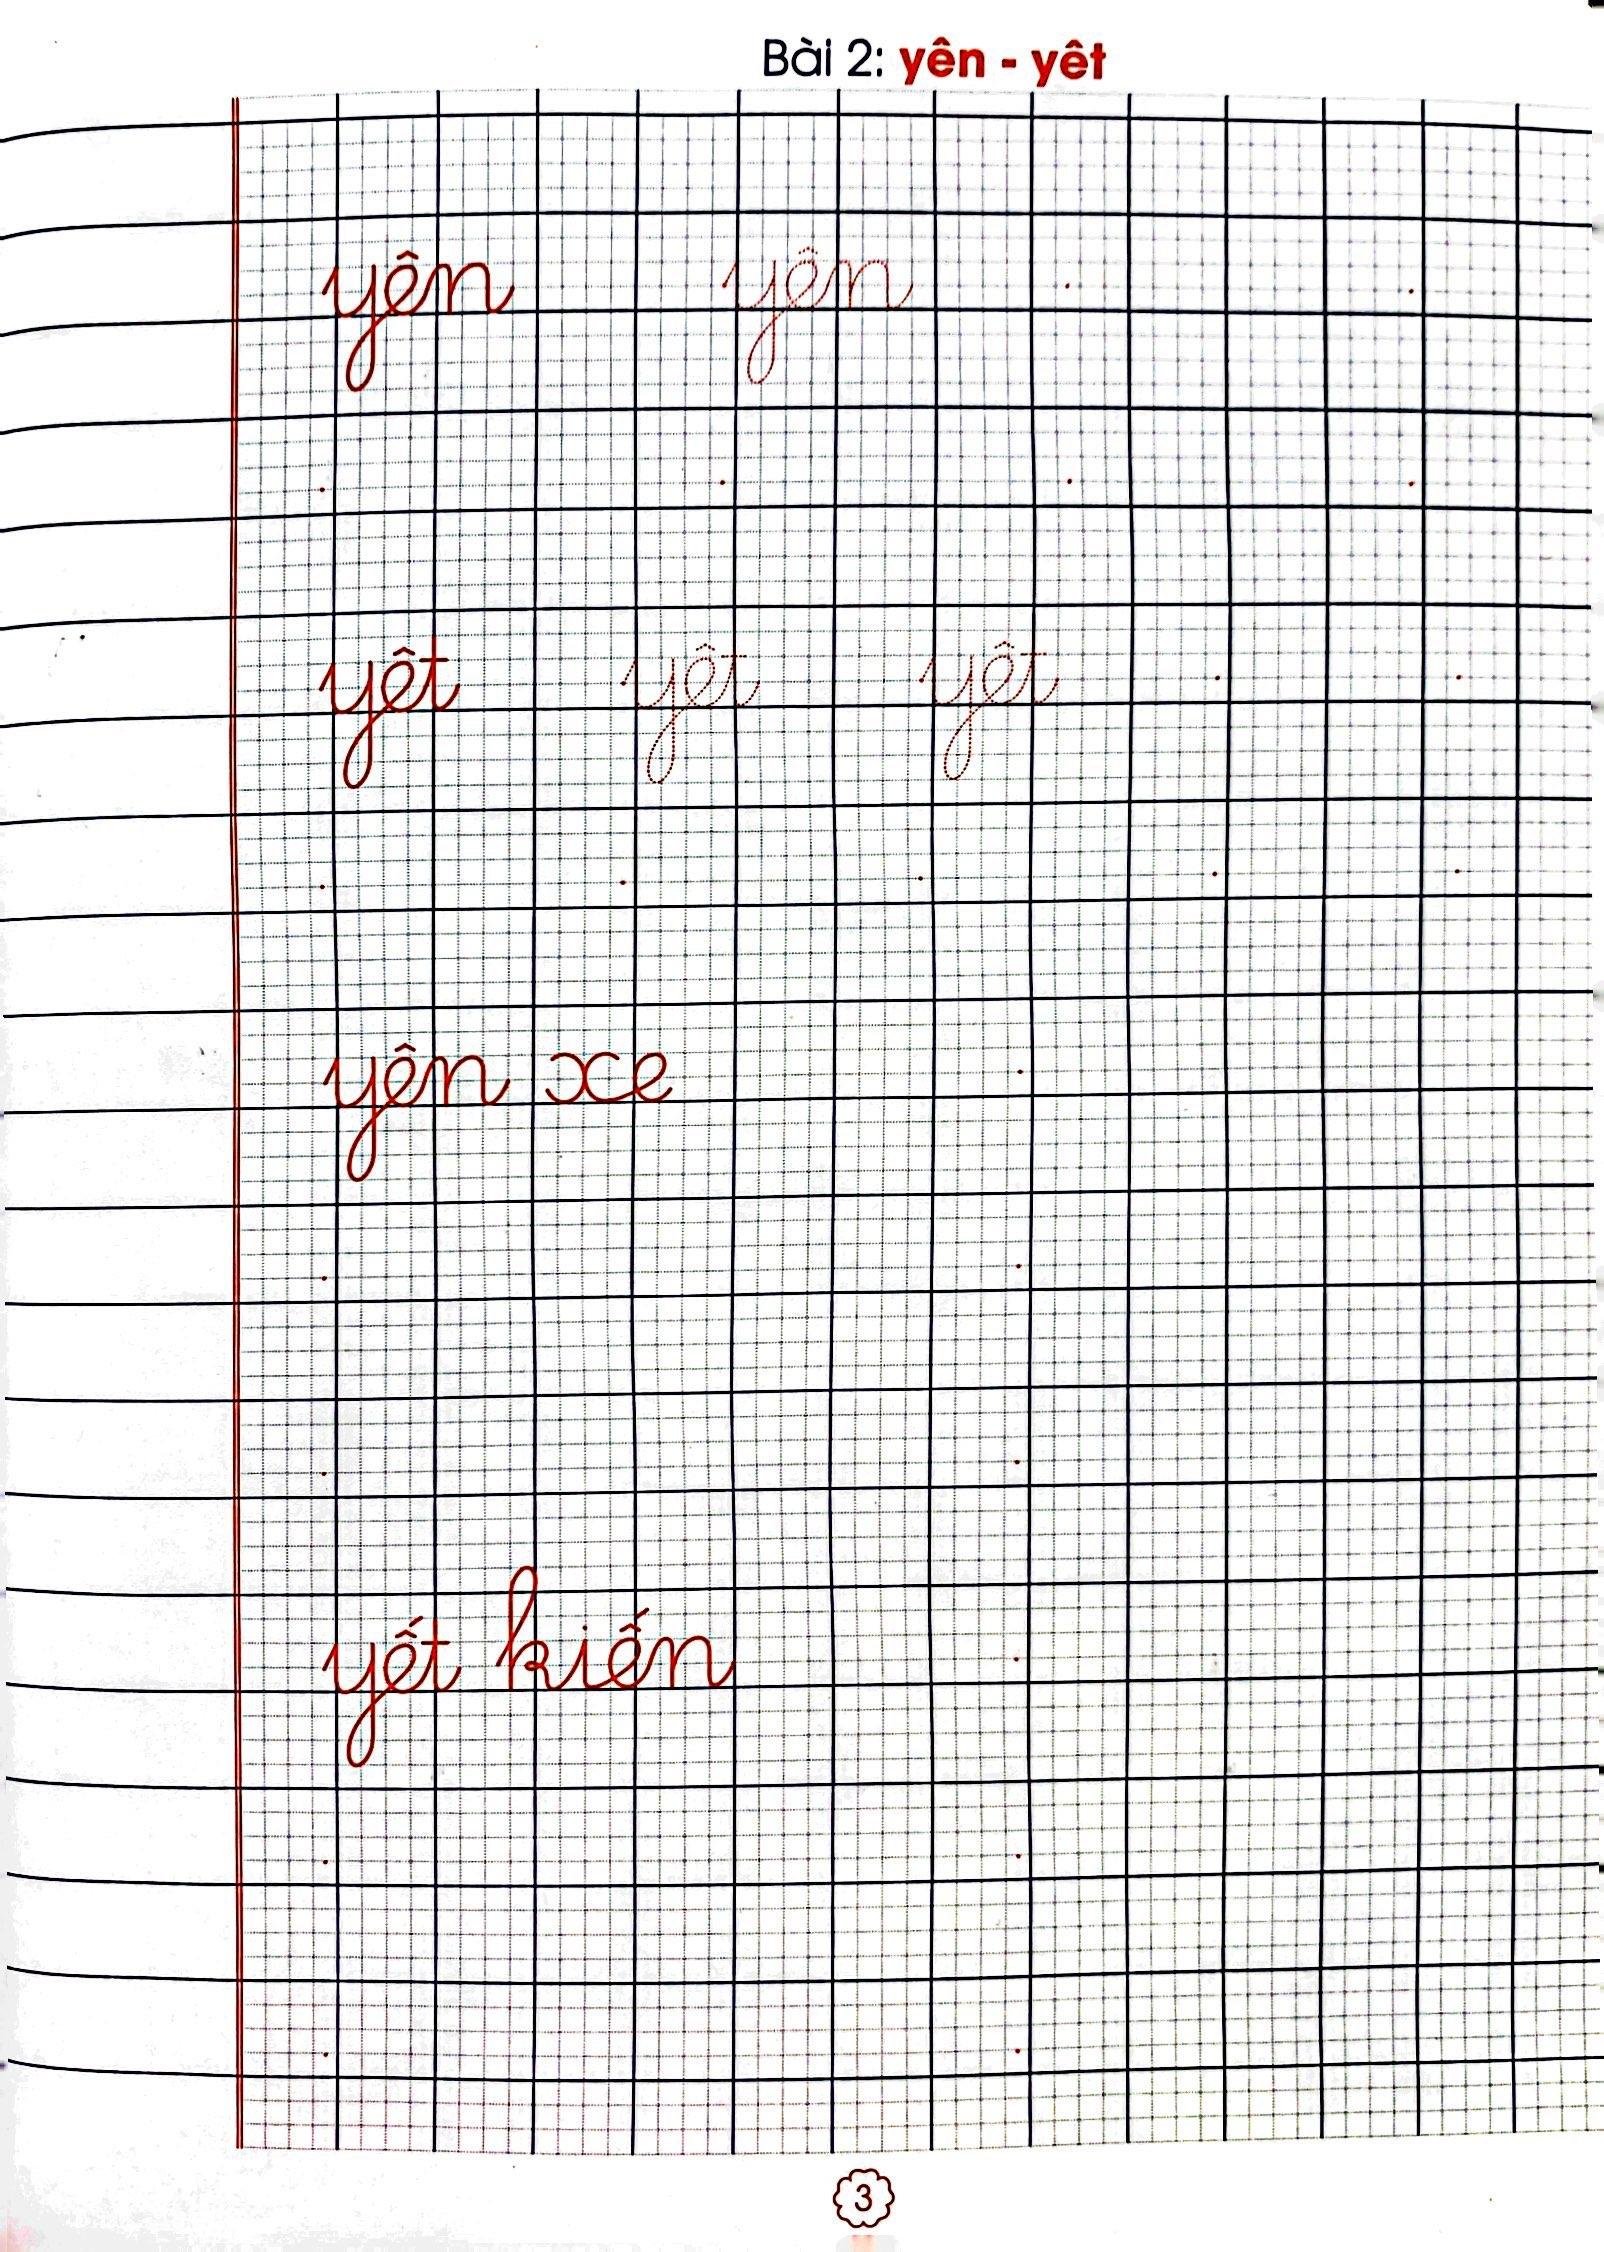 Bài 2: yên - yêt
yên yên
yêt yêt yêt
yên xe
yết kiến
3